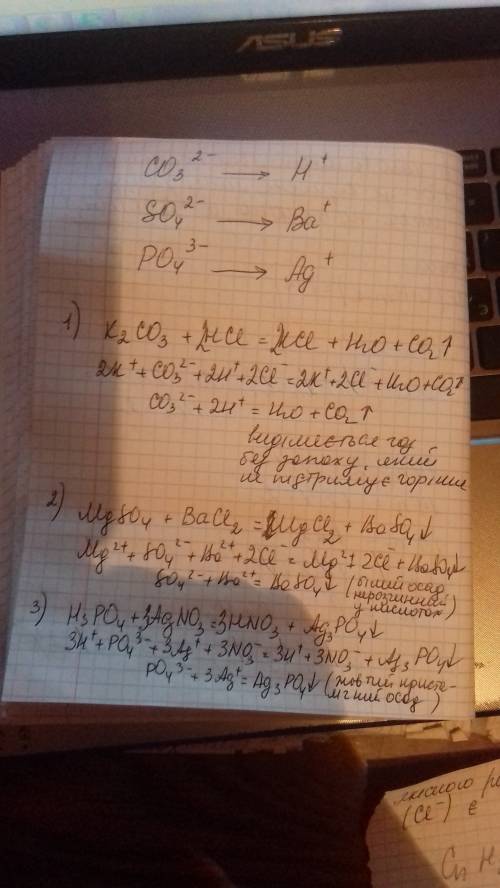 ASUS
CO₃²⁻ → H⁺
SO₄²⁻ → Ba⁺
PO₄³⁻ → Ag⁺
1) K₂CO₃ + 2HCl = 2KCl + H₂O + CO₂↑
2K⁺ + CO₃²⁻ + 2H⁺ + 2Cl⁻ = 2K⁺ + 2Cl⁻ + H₂O + CO₂↑
CO₃²⁻ + 2H⁺ = H₂O + CO₂↑
виділяється газ
без запаху, який
не підтримує горіння
2) MgSO₄ + BaCl₂ = MgCl₂ + BaSO₄↓
Mg²⁺ + SO₄²⁻ + Ba²⁺ + 2Cl⁻ = Mg²⁺ + 2Cl⁻ + BaSO₄↓
SO₄²⁻ + Ba²⁺ = BaSO₄↓ (білий осад
нерозчинний
у кислотах)
3) H₃PO₄ + 3AgNO₃ = 3HNO₃ + Ag₃PO₄↓
3H⁺ + PO₄³⁻ + 3Ag⁺ + 3NO₃⁻ = 3H⁺ + 3NO₃⁻ + Ag₃PO₄↓
PO₄³⁻ + 3Ag⁺ = Ag₃PO₄↓ (жовтий криста-
лічний осад)
(Cl⁻) є